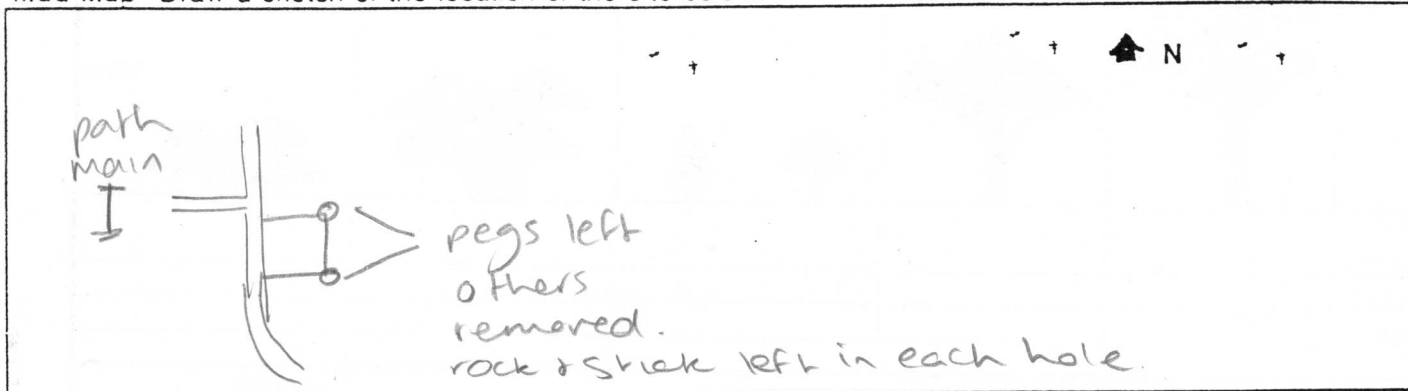 N
path
main
pegs left
others
removed.
rock & stick left in each hole.